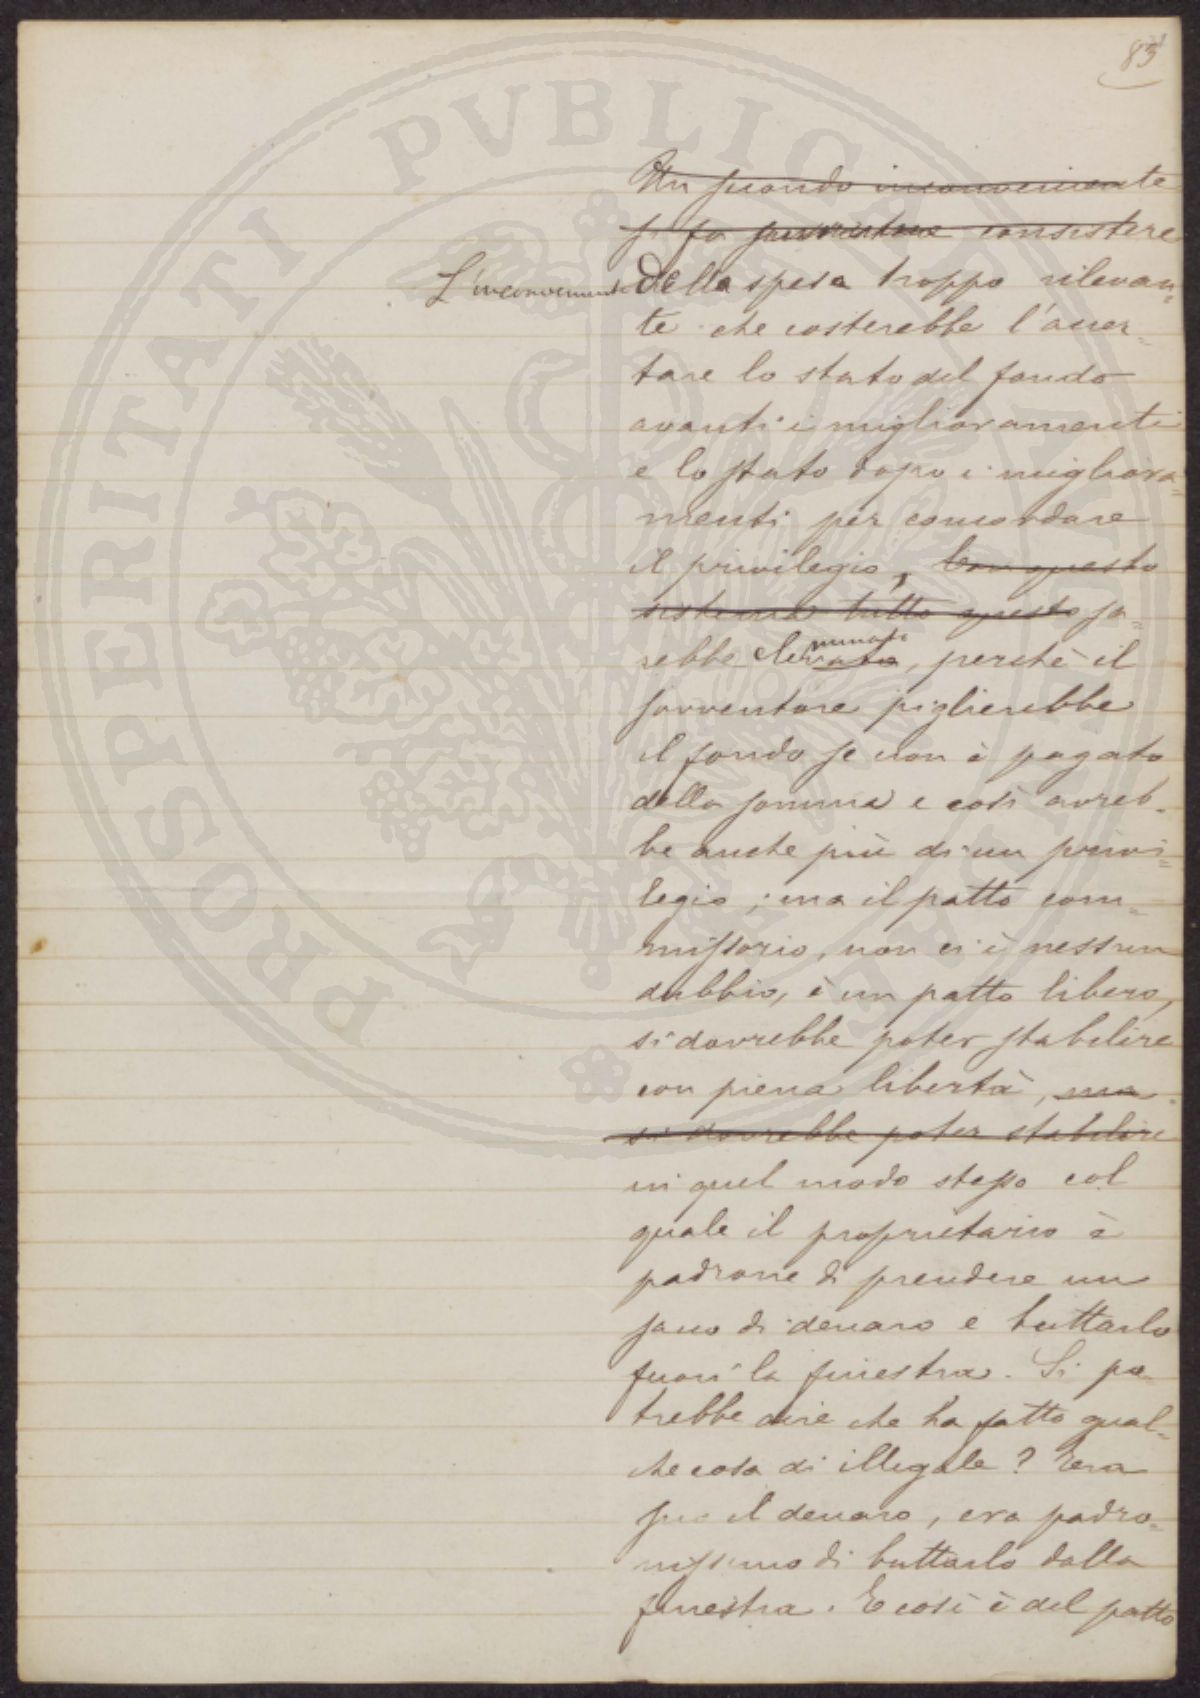 83
Un secondo inconveniente
si fa consistere
L'inconveniente della spesa troppo rilevan=
te che costerebbe l'accer=
tare lo stato del fondo
avanti i miglioramenti
e lo stato dopo i migliora=
menti per concordare
il privilegio, Con questo
sistema tutto questo sa=
rebbe eliminato, perchè il
sovventore piglierebbe
il fondo se non è pagato
della somma e così avreb=
be anche più di un privi=
legio; ma il patto com=
missorio, non ci è nessun
dubbio, è un patto libero,
si dovrebbe poter stabilire
con piena libertà, ma
si dovrebbe poter stabilire
in quel modo stesso col
quale il proprietario è
padrone di prendere un
sacco di denaro e buttarlo
fuori la finestra. Si po
trebbe dire che ha fatto qual=
che cosa di illegale? Era
suo il denaro, era padro=
nissimo di buttarlo dalla
finestra. E così è del patto
PROSPERITATI PVBLICAE